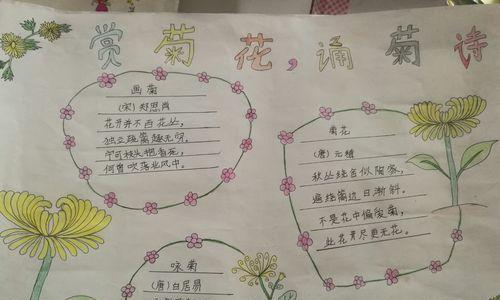 赏菊花,诵菊诗
画菊
(宋)郑思肖
花开并不百花丛,
独立疏篱趣无穷。
宁可枝头抱香死,
何曾吹落北风中。
菊花
(唐)元稹
秋丛绕舍似陶家,
遍绕篱边日渐斜。
不是花中偏爱菊,
此花开尽更无花。
咏菊
(唐)白居易